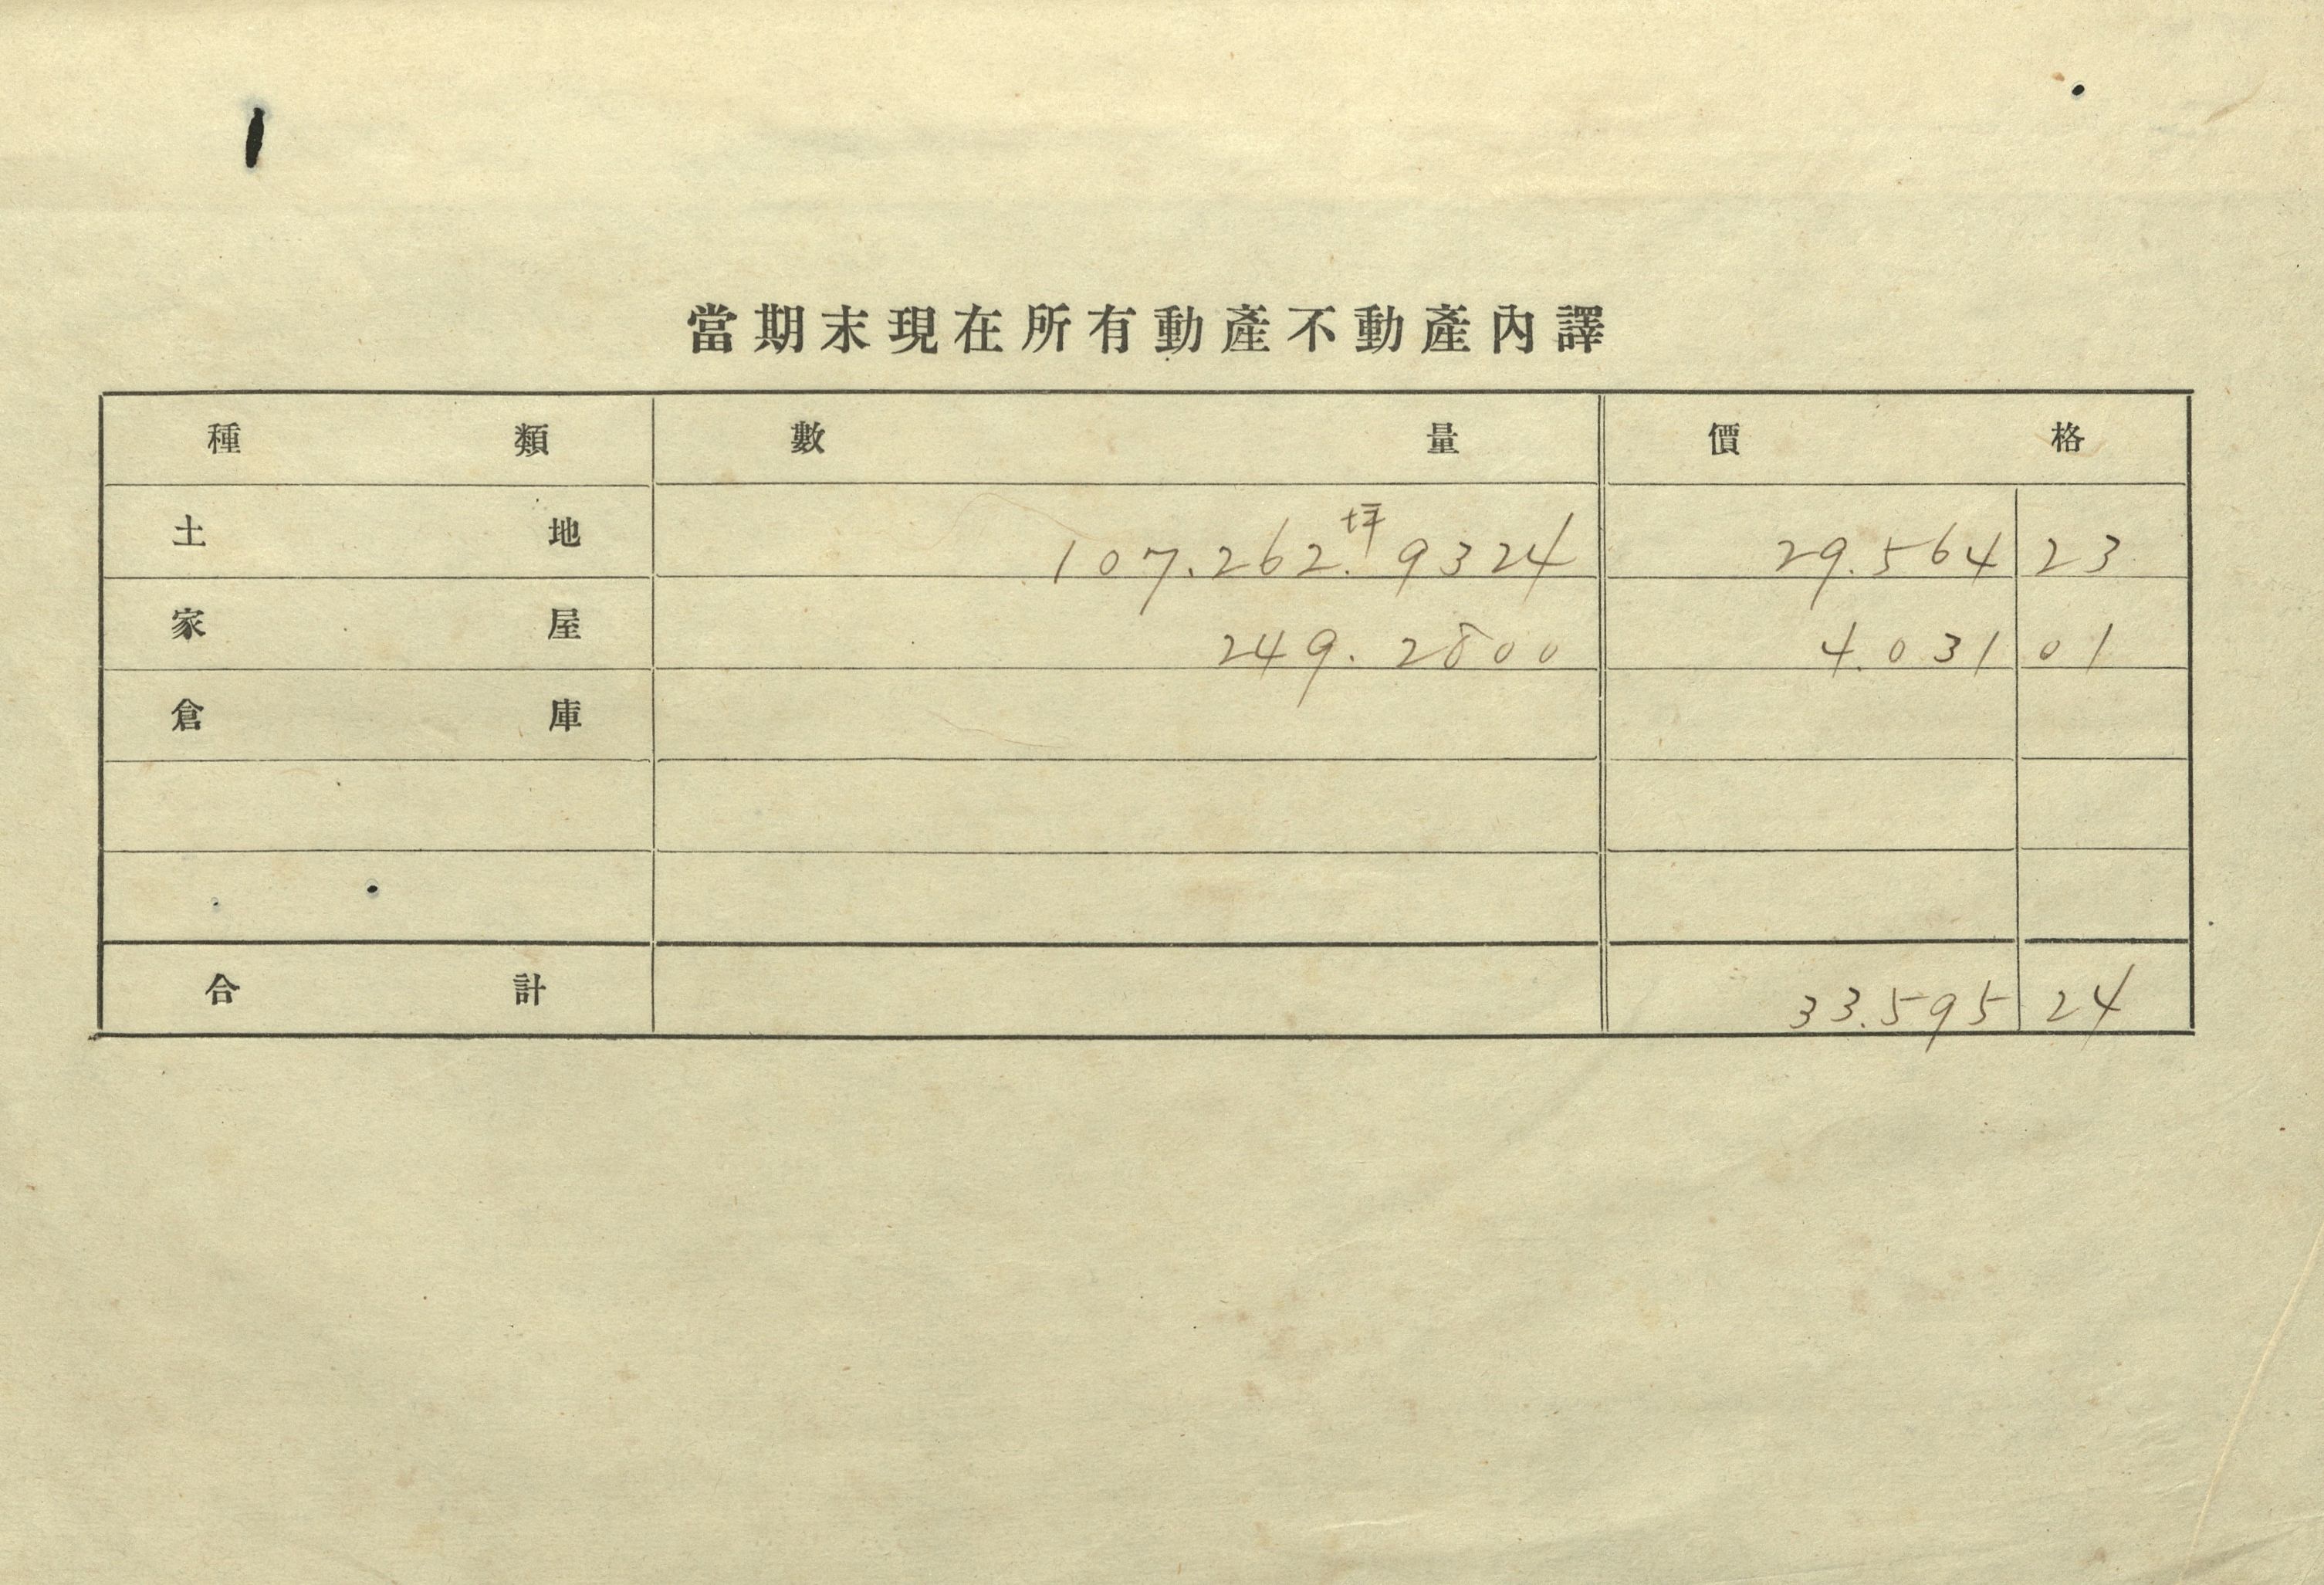 當期末現在所有動產不動產內譯
種類 數量 價格
土地 107.262.坪9324 29.564 23
家屋 249.2800 4.031 01
倉庫
合計 33.595 24